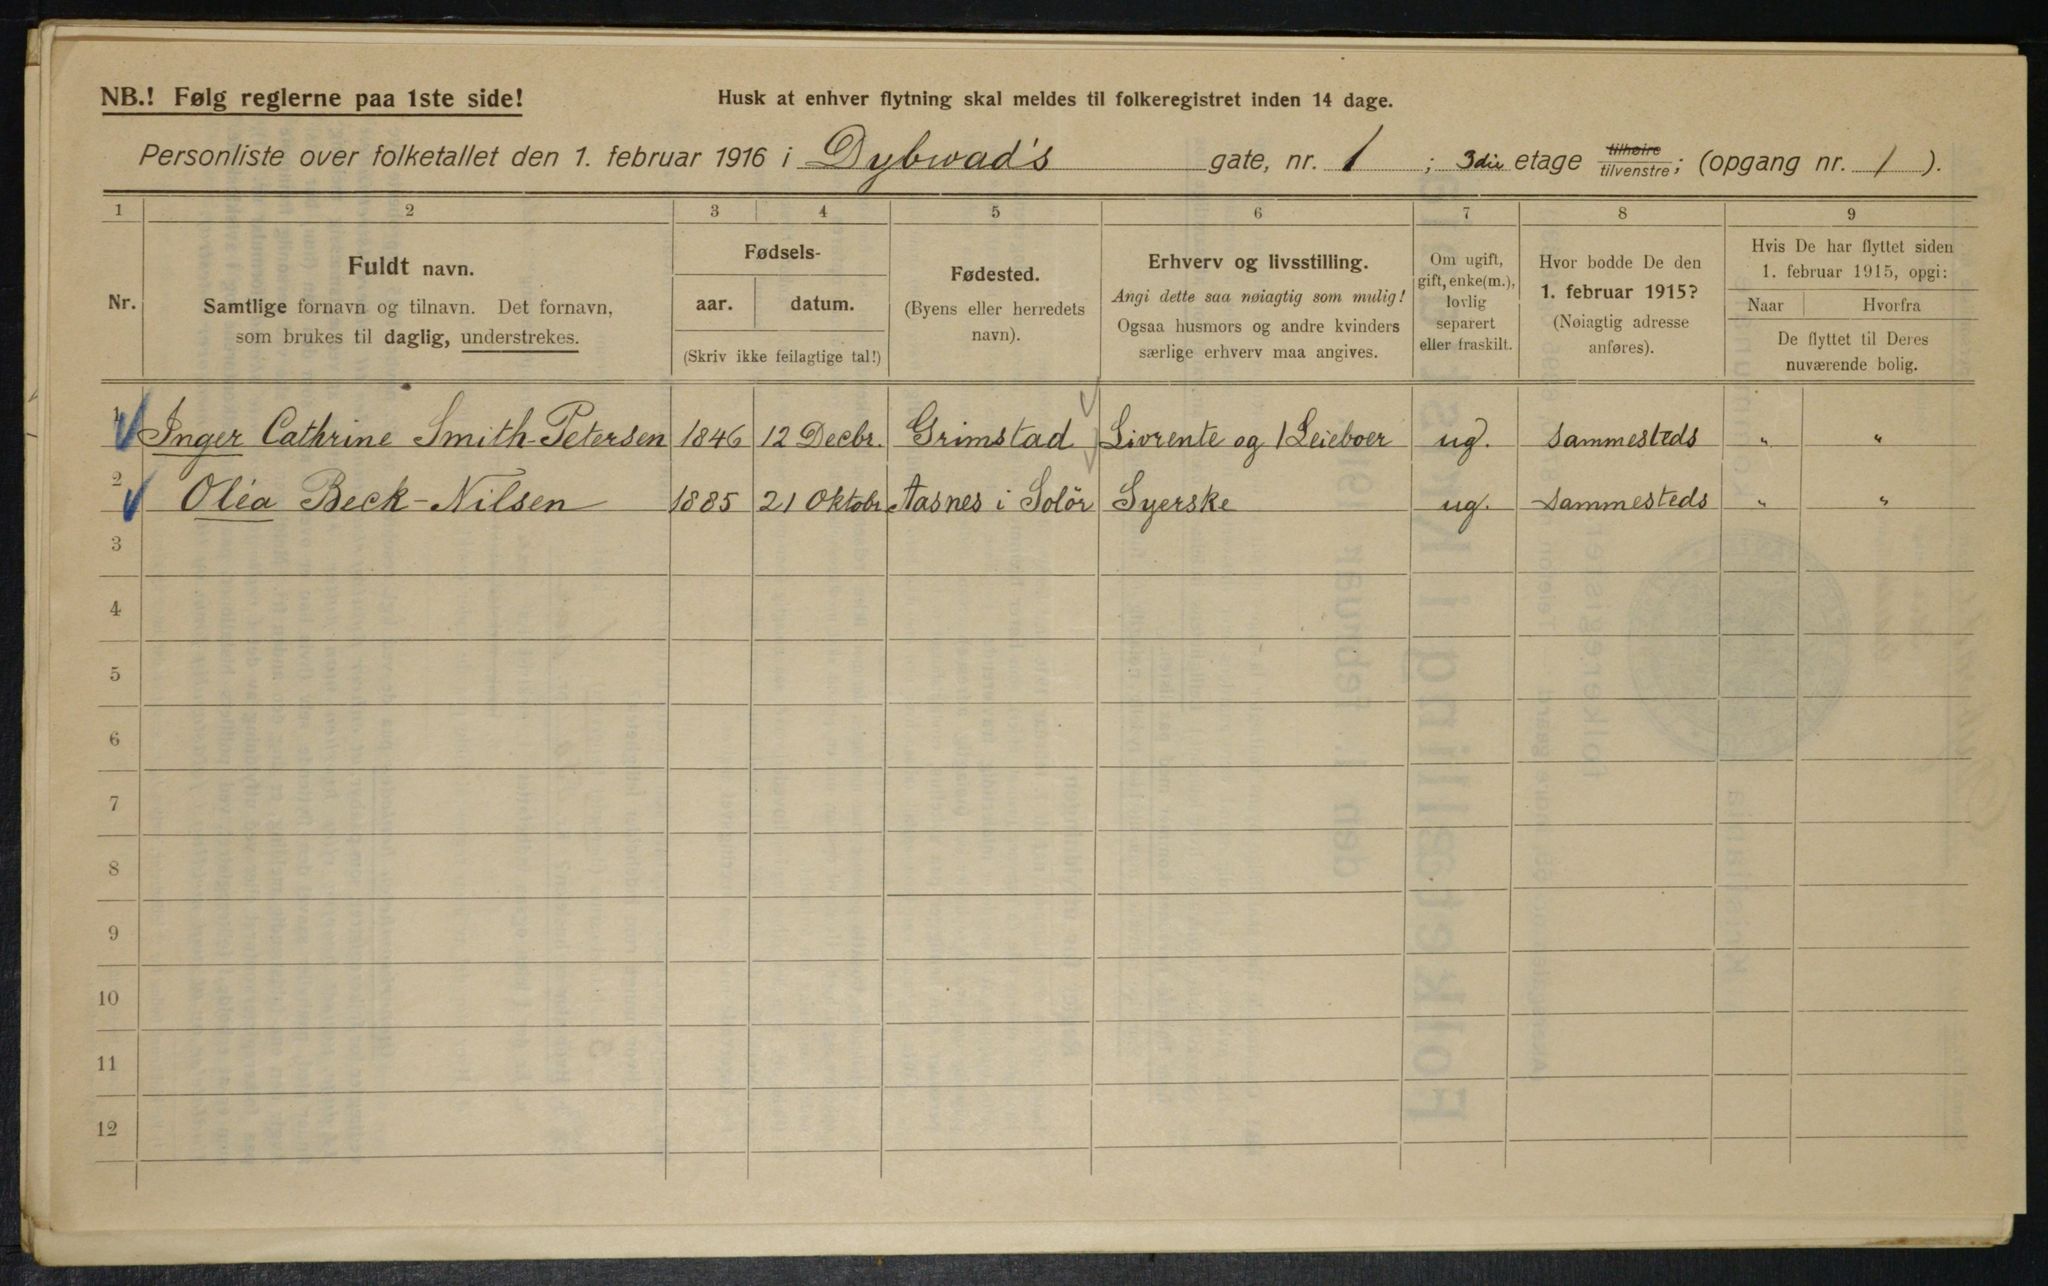 NB.! Følg reglerne paa 1ste side!
Husk at enhver flytning skal meldes til folkeregistret inden 14 dage.
Personliste over folketallet den 1. februar 1916 i Dybwad's gate, nr. 1 ; 3die etage tilhøire tilvenstre; (opgang nr. 1).
1 2 3 4 5 6 7 8 9
Nr.
Fuldt navn.
Samtlige fornavn og tilnavn. Det fornavn,
som brukes til daglig, understrekes.
Fødsels-
aar. datum.
(Skriv ikke feilagtige tal!)
Fødested.
(Byens eller herredets
navn).
Erhverv og livsstilling.
Angi dette saa nøiagtig som mulig!
Ogsaa husmors og andre kvinders
særlige erhverv maa angives.
Om ugift,
gift, enke(m.),
lovlig
separert
eller fraskilt.
Hvor bodde De den
1. februar 1915?
(Nøiagtig adresse
anføres).
Hvis De har flyttet siden
1. februar 1915, opgi:
Naar Hvorfra
De flyttet til Deres
nuværende bolig.
1 Inger Cathrine Smith-Petersen 1846 12 Decbr. Grimstad Livrente og 1 Leieboer ug. Sammesteds " "
2 Oléa Beck-Nilsen 1885 21 Oktobr Aasnes i Solør Syerske ug. Sammesteds " "
3
4
5
6
7
8
9
10
11
12